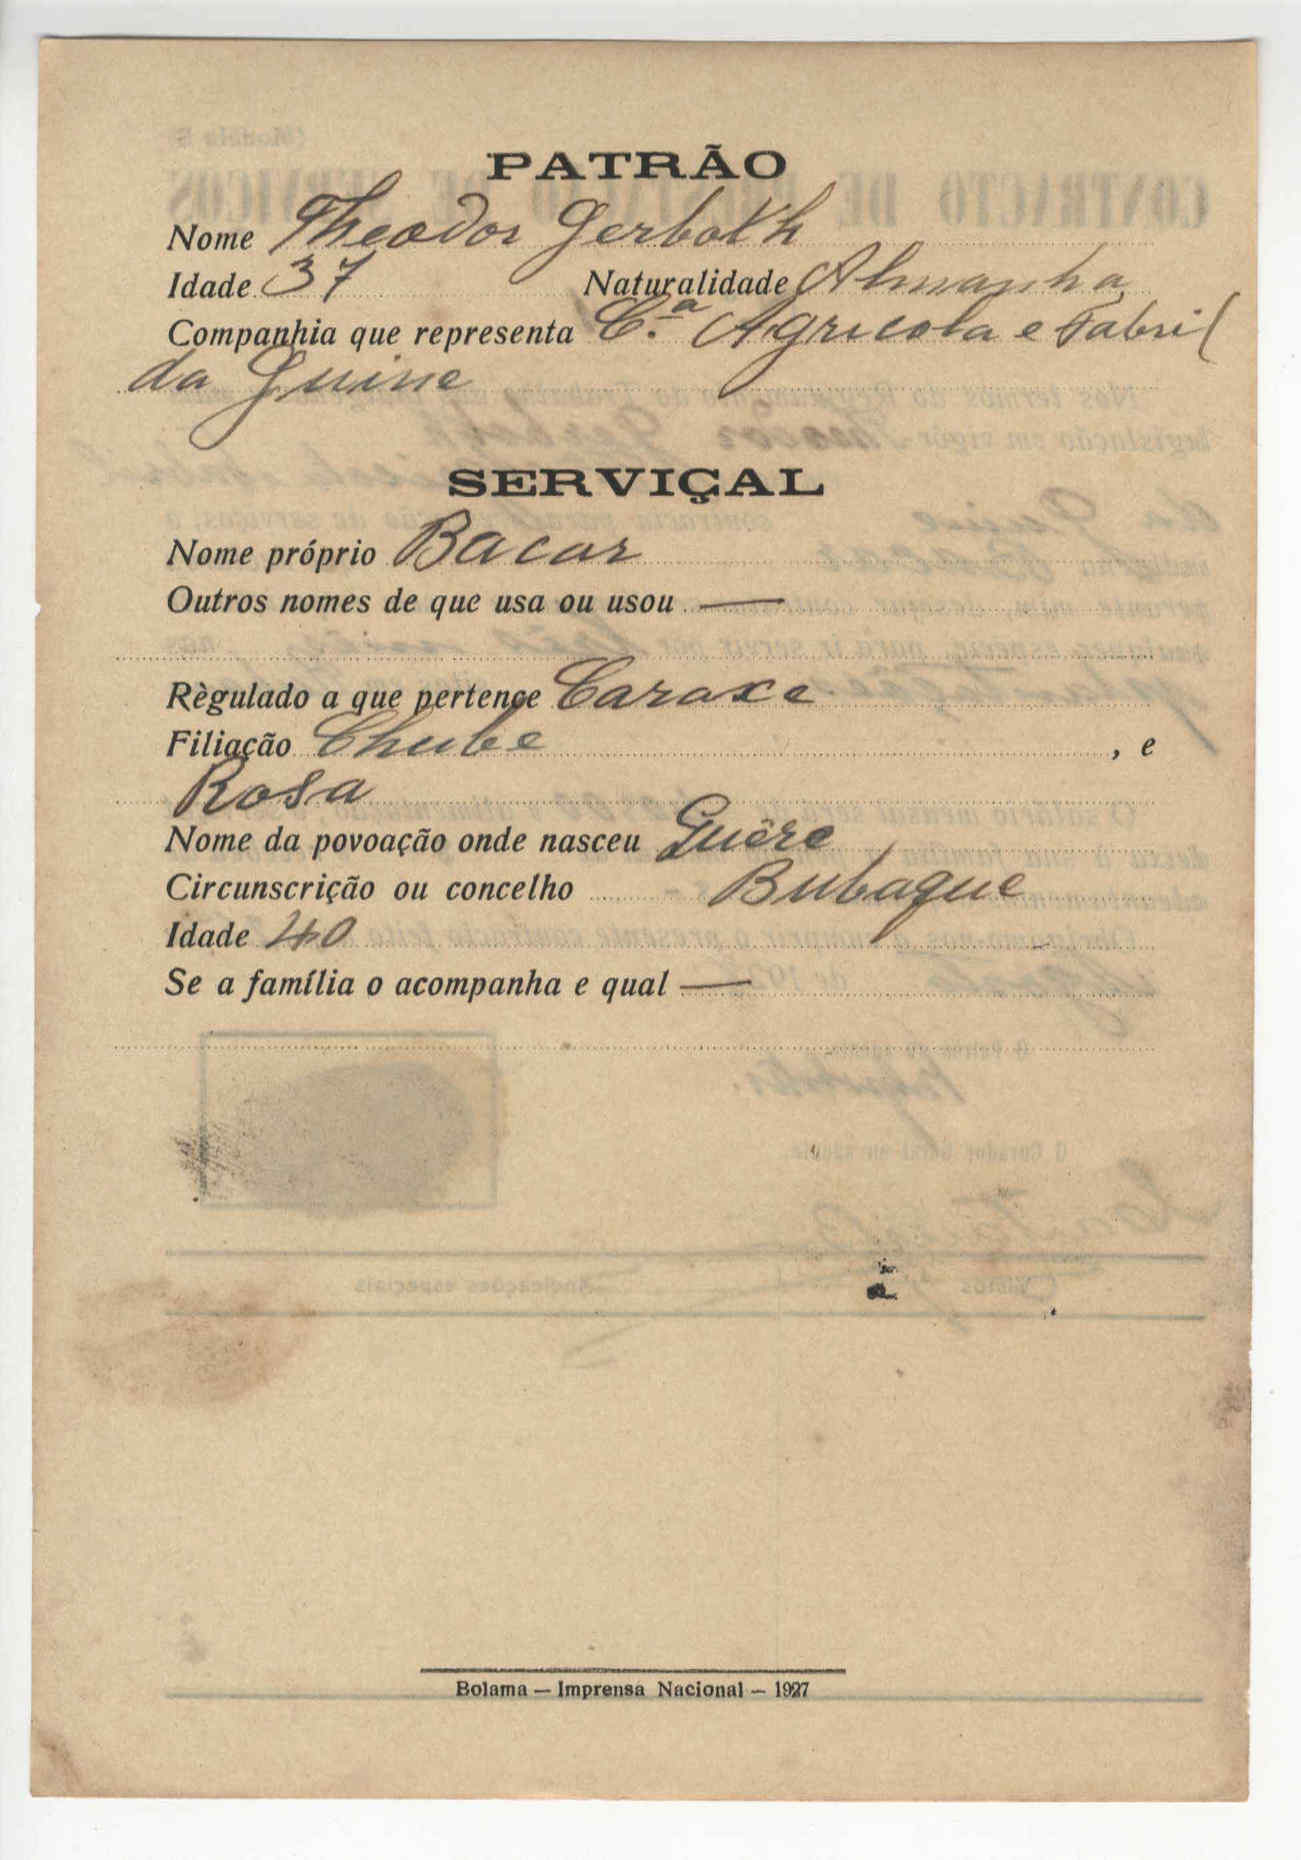 PATRÃO
Nome Theodor Gerboth
Idade 37 Naturalidade Almanha
Companhia que representa C.ª Agricola e Fabril
da Guine
SERVIÇAL
Nome próprio Bacar
Outros nomes de que usa ou usou —
Règulado a que pertence Caraxe
Filiação Chube , e
Rosa
Nome da povoação onde nasceu Guêre
Circunscrição ou concelho Bubaque
Idade 40
Se a família o acompanha e qual —
Bolama — Imprensa Nacional — 1927